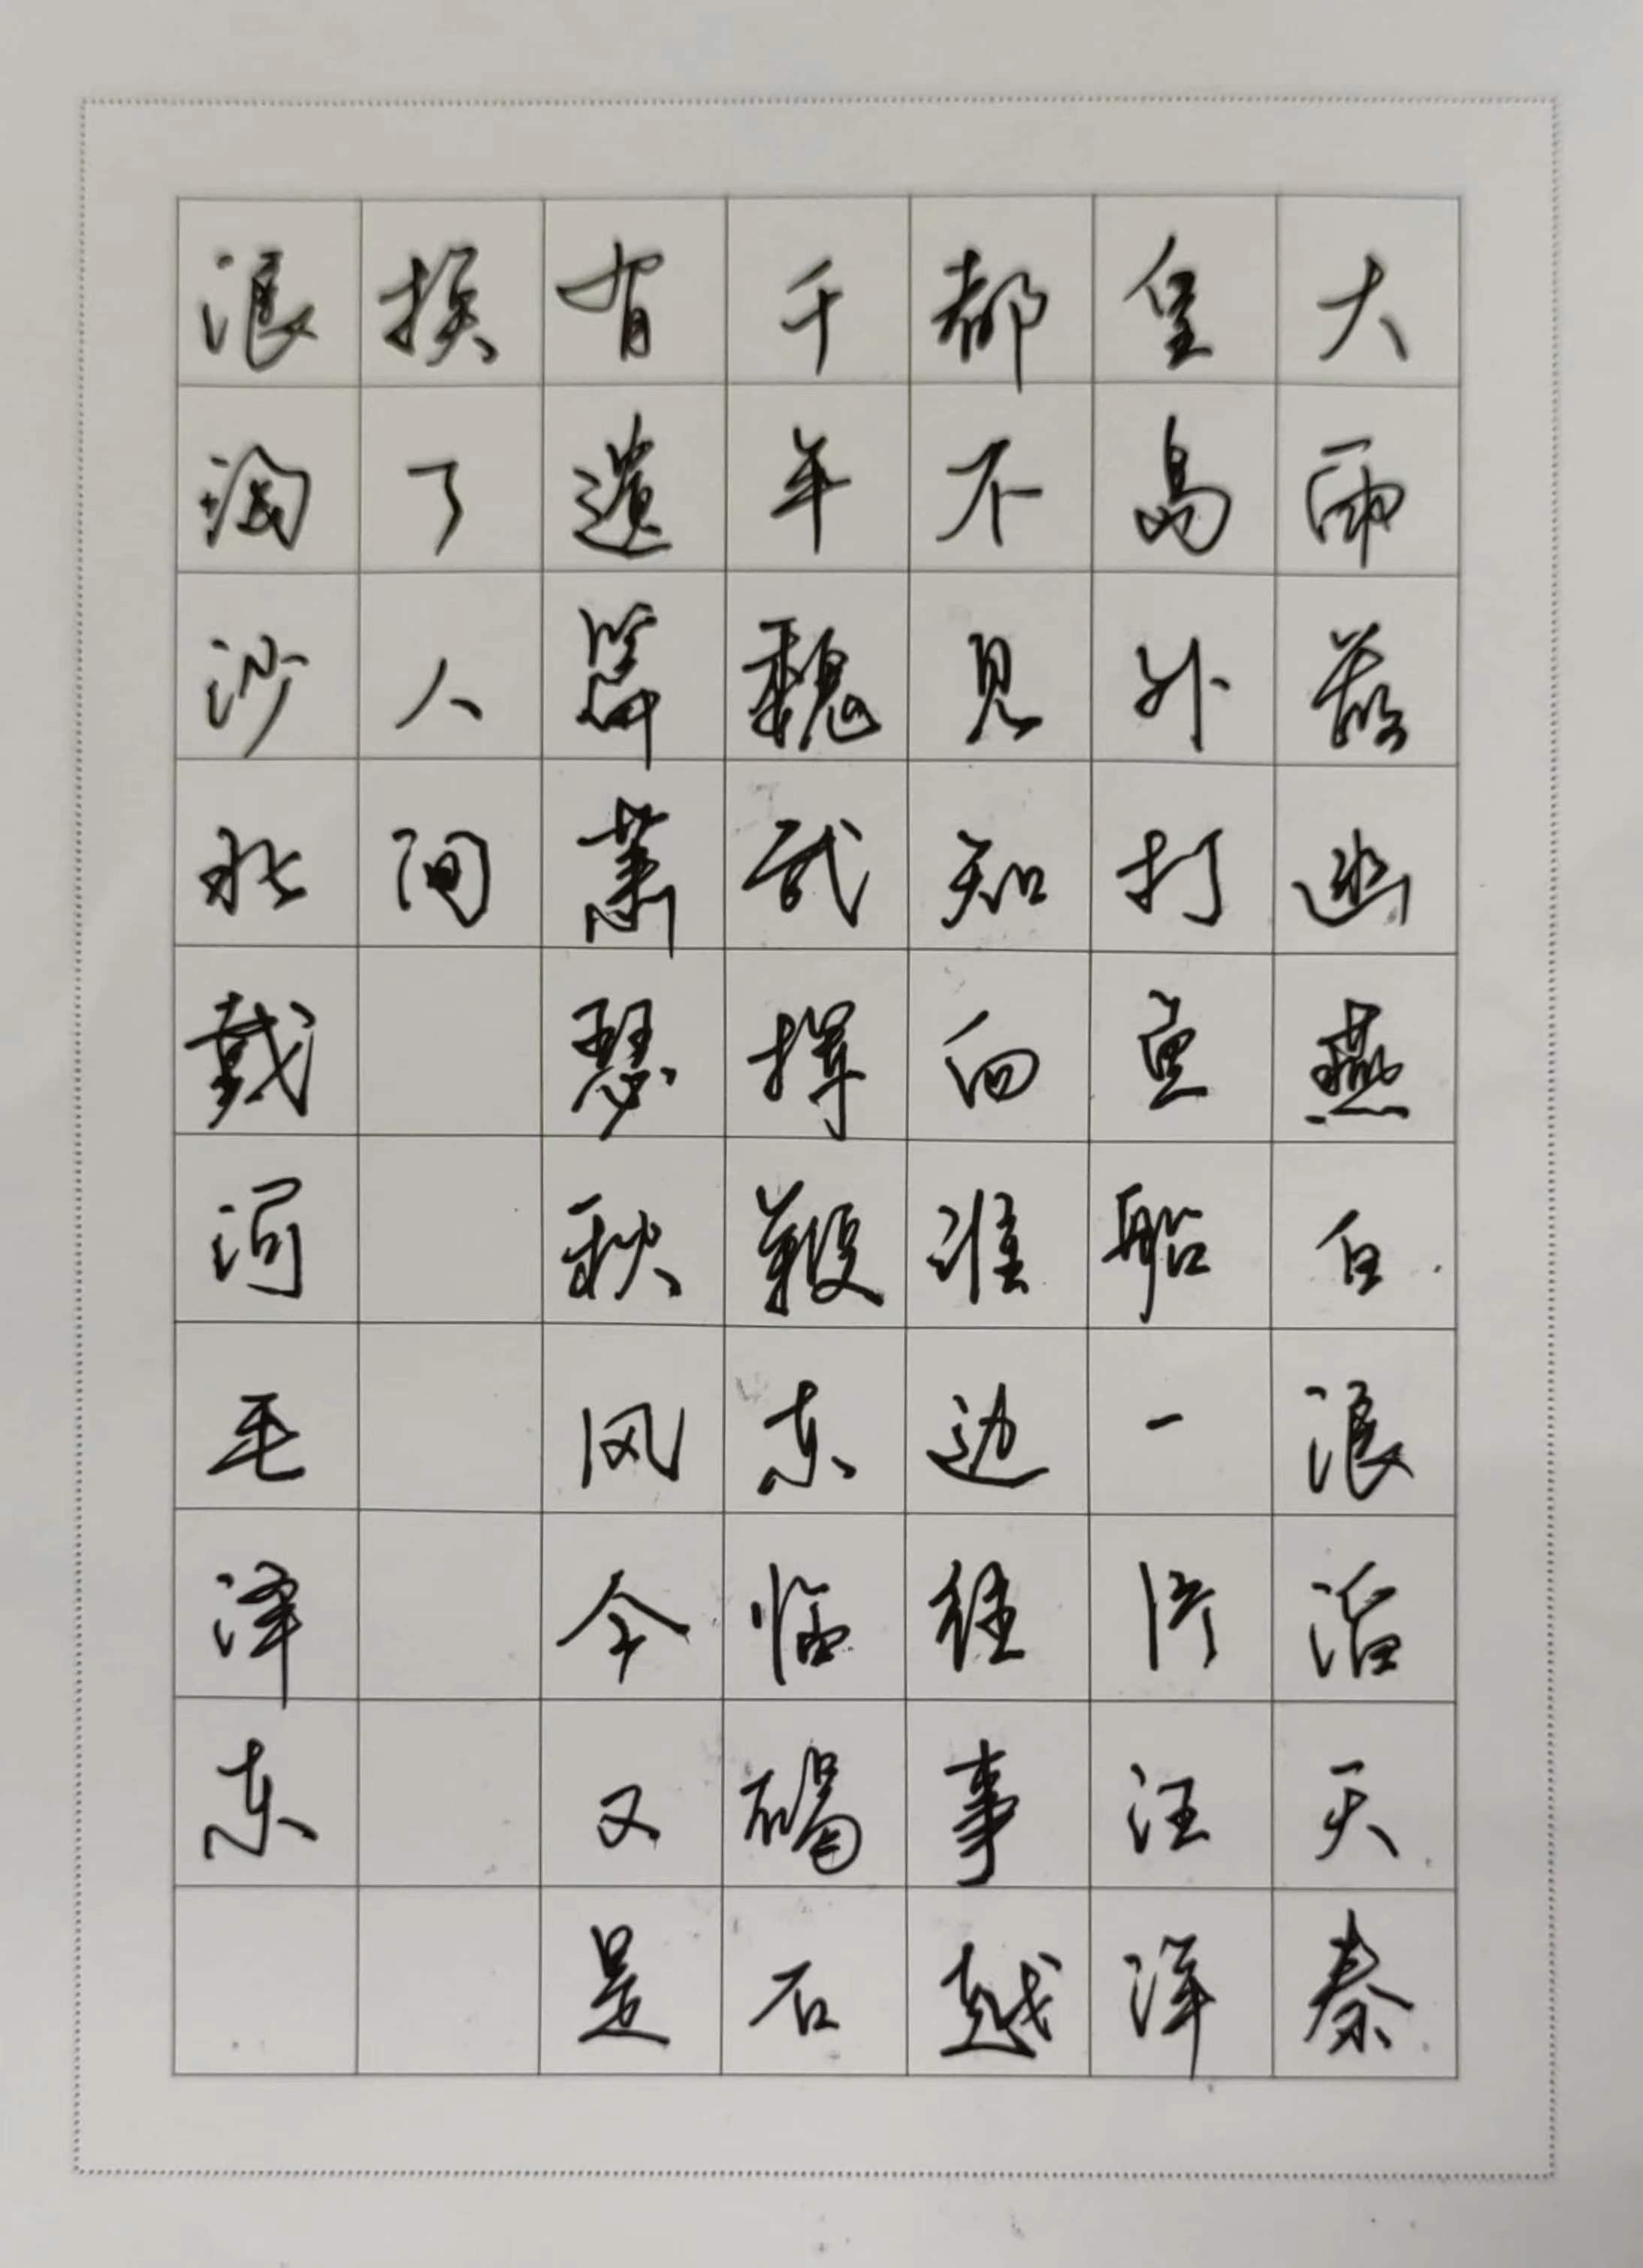 大雨落幽燕白浪滔天秦
皇岛外打鱼船一片汪洋
都不见知向谁边往事越
千年魏武挥鞭东临碣石
有遗篇萧瑟秋风今又是
换了人间
浪淘沙北戴河毛泽东